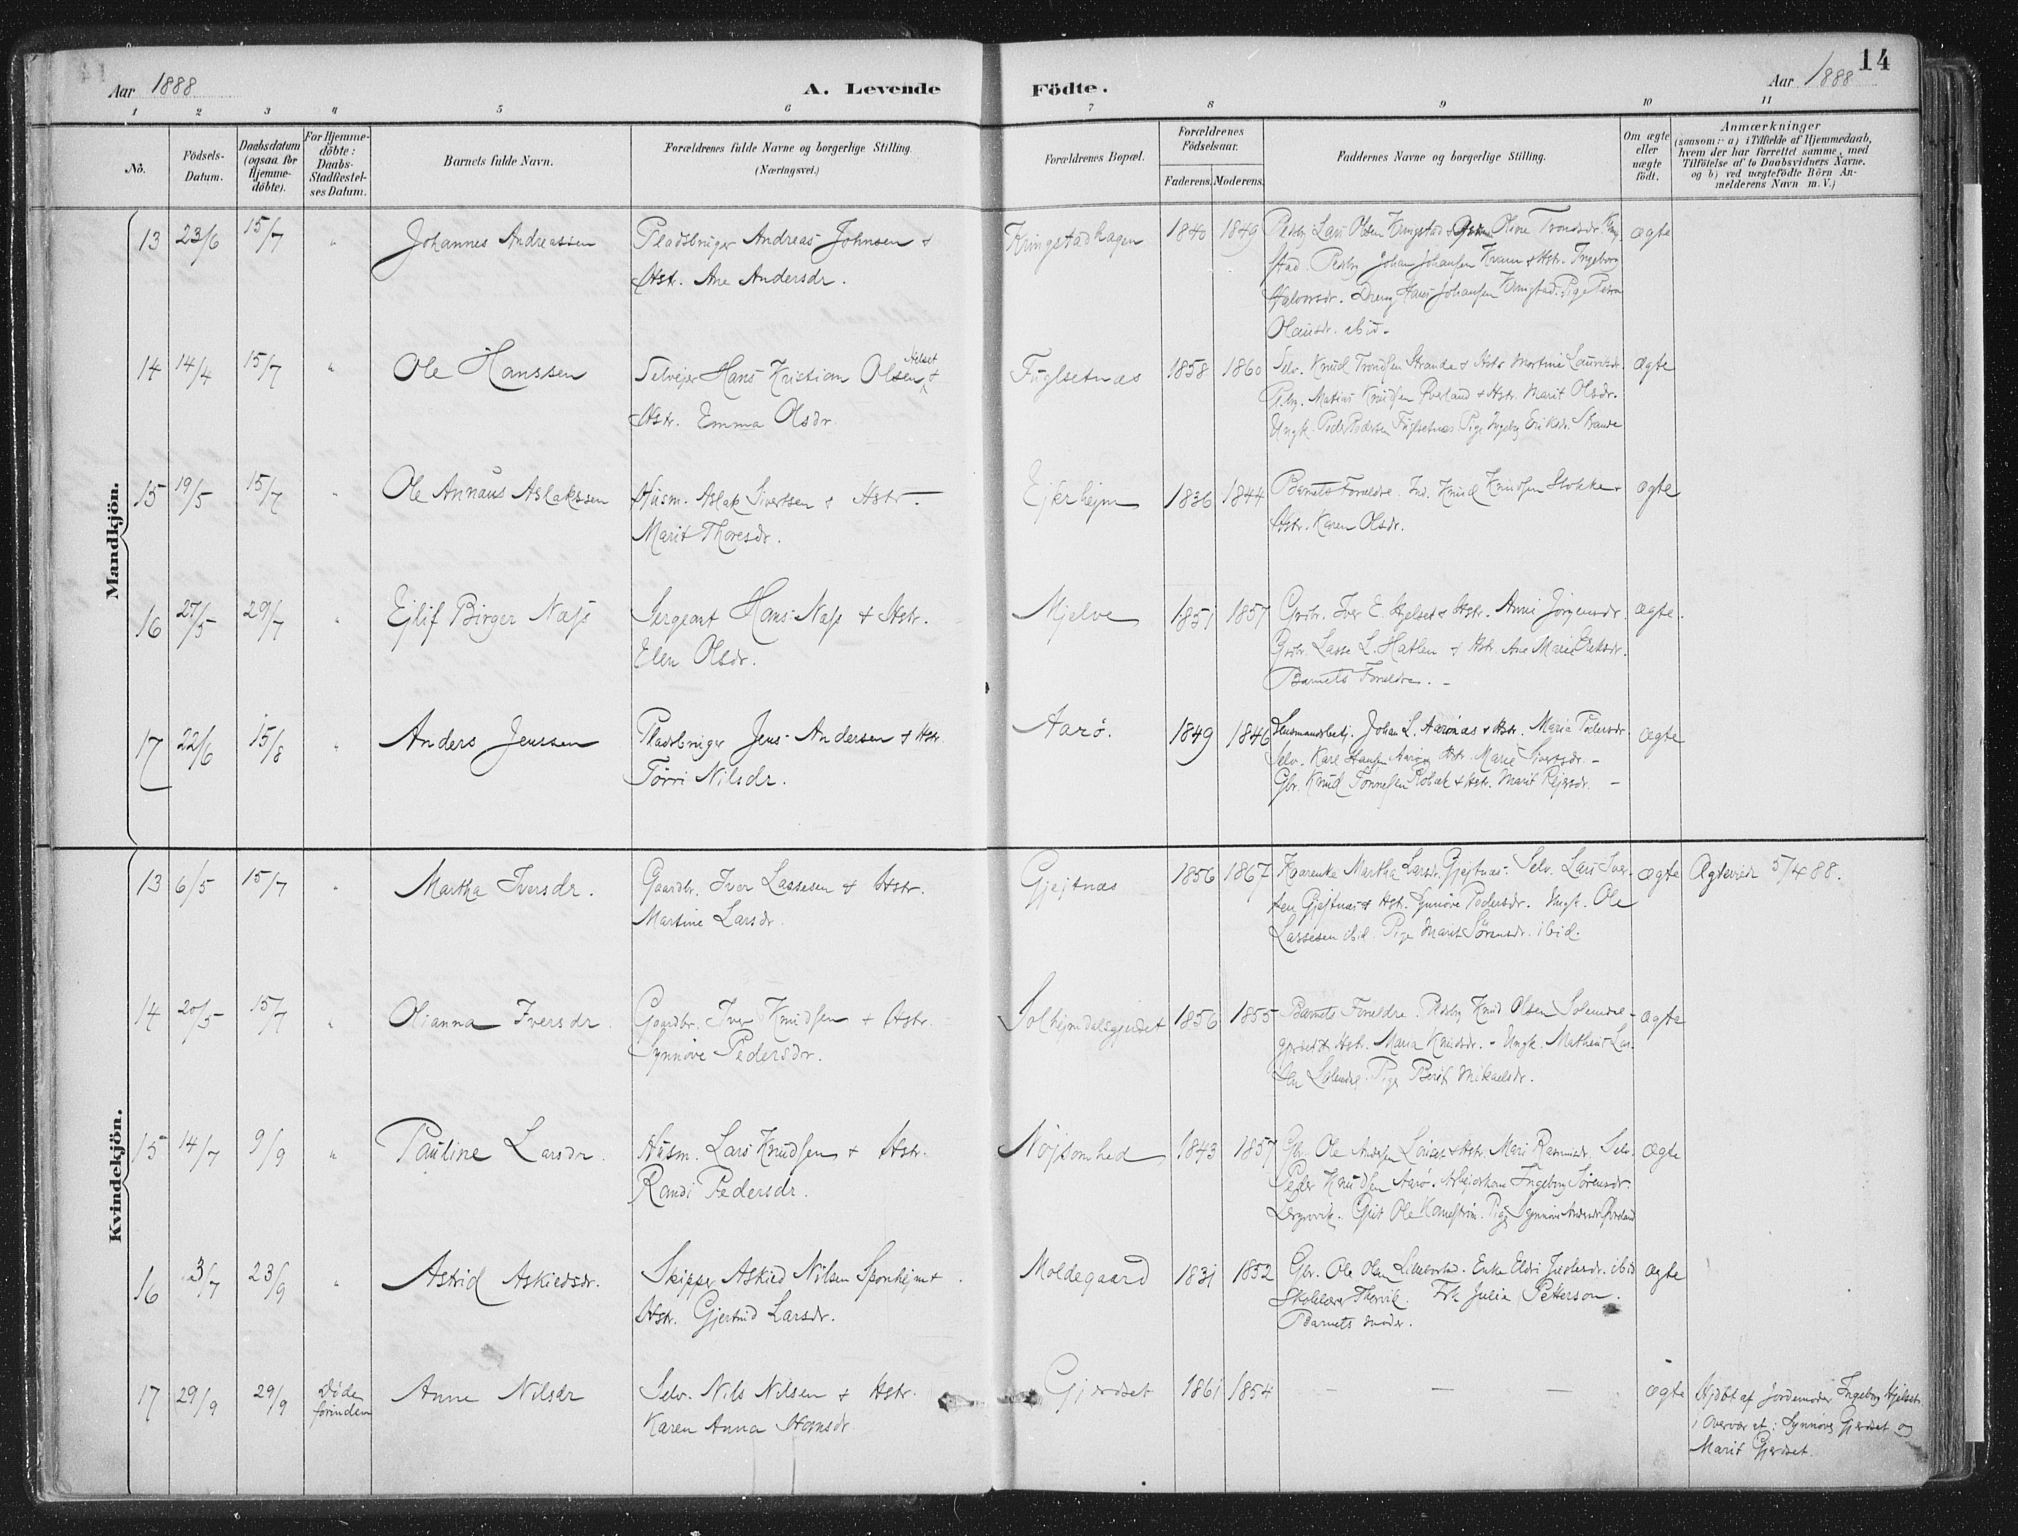 Aar 1888
A. Levende
Födte.
Aar 1888
14
1 2 3 4 5 6 7 8 9 10 11
No.
Födsels-
Datum.
Daabsdatum
(ogsaa for
Hjemme-
döbte).
For Hjemme-
döbte:
Daabs-
Stadfæstel-
ses Datum.
Barnets fulde Navn.
Forældrenes fulde Navne og borgerlige Stilling
(Næringsvei.)
Forældrenes Bopæl.
Forældrenes
Födselsaar.
Faderens. Moderens.
Faddernes Navne og borgerlige Stilling.
Om ægte
eller
uægte
födt.
Anmærkninger
(saasom: a) i Tilfælde af Hjemmedaab,
hvem der har forrettet samme, med
Tilföielse af to Daabsvidners Navne.
og b) ved uægtefödte Börn An-
melderens Navn m. V.)
Mandkjön.
13 23/6 15/7 " Johannes Andreassen
Pladsbruger Andreas Johnsen +
Hstr. Ane Andersdr.
Kringstadhagen 1840 1849
Pladsbr Lars Olsen Kringstad Oline Tronsdr. Kring
stad. Johan Johansen Kvam + Hstr. Ingeborg
Halvorsdr. Dreng Hans Johansen Kringstad. Pige Petra
Olausdr. ibid.
ægte
14 14/4 15/7 " Ole Hanssen
Selvejer Hans Kristian Olsen Helset +
Hstr. Emma Olsdr.
Fuglsetnæs 1858 1860
Selv. Knud Trondsen Strande + Hstr Martine Lauritsdr.
Matias Knudsen Øverland + Hstr. Marit Olsdr.
Ungk. Peder Pedersen Fuglsetnæs Pige Ingebg Eriksdr. Strande
ægte
15 19/5 15/7 " Ole Annæus Aslakssen
Husm. Aslak Sivertsen + Hstr
Marit Thoresdr.
Ejkrhejm 1836 1844
Barnets Forældre. Ind. Knud Knudsen Stokke +
Hstr. Karen Olsdr.
ægte
16 27/5 29/7 " Ejlif Birger Næss
Sergeant Hans Næss + Hstr.
Elen Olsdr.
Mjelve 1851 1857
Grbr. Iver E. Hjelset + Hstr. Anne Jørgensdr.
Grbr. Lasse L. Hatlen + Hstr Ane Marie Olsdr.
Barnets Forældre. –
ægte.
17 22/6 15/8 " Anders Jenssen
Pladsbruger Jens Andersen + Hstr
Tørri Nilsdr.
Aarø. 1849 1846
Husmandsbetj. Johan L. Aarønæs + Hstr. Maria Pedersdr.
Selv. Karl Hansen Aarø + Hstr. Marie Sivertsdr. –
Gbr. Knud Tønnesen Robæk + Hstr. Marit Pedersdr. –
ægte
Kvindekjön.
13 6/5 15/7 " Martha Iversdr.
Gaardbr. Iver Lassesen + Hstr.
Martine Larsdr.
Gjejtnæs 1856 1867
Kaarenke Martha Larsdr. Gjejtnæs. Selv. Lars Iver-
sen Gjejtnæs + Hstr. Synnøve Pedersdr. Ungk. Ole
Lassesen ibid. Pige Marit Sørensdr. ibid.
ægte
Ægteviede 5/4 88.
14 20/5 15/7 " Olianna Iversdr.
Gaardbr. Iver Knudsen + Hstr.
Synnøve Pedersdr.
Solhejmdalsgjerdet 1856 1855
Barnets Forældre. Pladsbr Knud Olsen Solemdal-
gjerdet + Hstr. Maria Knudsdr. – Ungk. Mathias Lar-
sen Solemdal. Pige Berit Mikaelsdr.
ægte
15 14/7 9/9 " Pauline Larsdr.
Husm. Lars Knudsen + Hstr.
Randi Pedersdr.
Nøjsomhed 1843 1857
Gbr. Ole Andersen Lønset + Hstr. Mari Rasmusdr. Selv.
Peder Knudsen Aarø. Arbejderkone Ingeborg Sørensdr.
Gut Ole Kanestrøm. Pige Synnøve Andersdr Øverland
ægte
16 3/7 23/9 " Astrid Askiedsdr.
Skipper Askied Nilsen Sponhejm +
Hstr. Gjertrud Larsdr.
Moldegaard 1831 1852
Gbr. Ole Olsen Enke Eldri ibid
Skolelærer Thorvik. Frk Julia Peterson.
Barnets moder.
ægte
17 29/9 29/9 Døde
forinden
Anne Nilsdr
Selv. Nils Nilsen + Hstr.
Karen Anna Hansdr.
Gjerdset 1861 1854
– – –
ægte
Hjdbt af Jordemoder Ingeborg Hjelset
i Overvær af: Synnøve Gjerdset og
Marit Gjerdset.